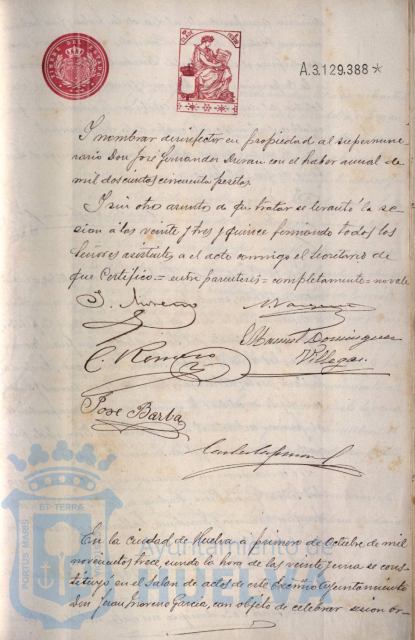 A.3.129.388*
Y nombrar desinfector en propiedad al supernume-
rario Don José Fernandez Duran con el haber anual de
mil doscientas cincuenta pesetas.
Y sin otro asunto de que tratar se levantó la se-
sion á las veinte y tres y quince firmando todos los
Señores asistentes a el acto conmigo el Secretario de
que Certifico.= entre parentesis = completamente = no vale
J. Moreno
C. Romero
Manuel Dominguez
Villegas.
José Barba
PORTUS MARIS
ET TERRÆ
Ayuntamiento de
HUELVA
En la ciudad de Huelva á primero de Octubre de mil
novecientos trece, siendo la hora de las veinte y una se cons-
tituyó en el Salon de actos de este Excmo Ayuntamiento
Don Juan Moreno Garcia, con objeto de celebrar sesion or-